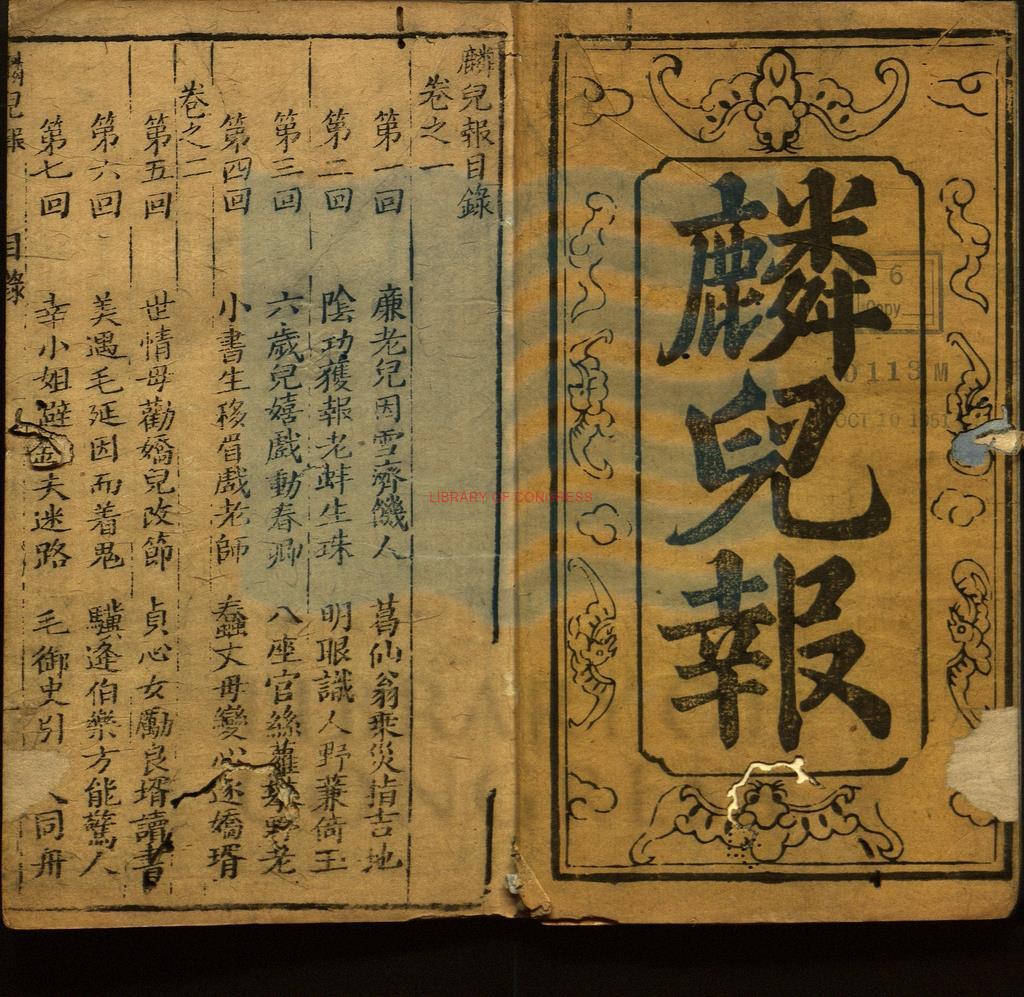 麟兒報
6
Copy
0113M
OCT 10 1951
LIBRARY OF CONGRESS
麟兒報目錄
卷之一
第一回 廉老兒因雪濟饑人 葛仙翁乘災指吉地
第二回 陰功獲報老蚌生珠 明眼識人野蒹倚玉
第三回 六歲兒嬉戲動春卿 八座官絲蘿野老
第四回 小書生移眉戲老師 蠢丈母變心逐嬌壻
卷之二
第五回 世情母勸嬌兒改節 貞心女勵良壻讀書
第六回 美遇毛延因而着鬼 驥逢伯樂方能驚人
第七回 幸小姐避金夫迷路 毛御史引 人同舟
兒報 目錄